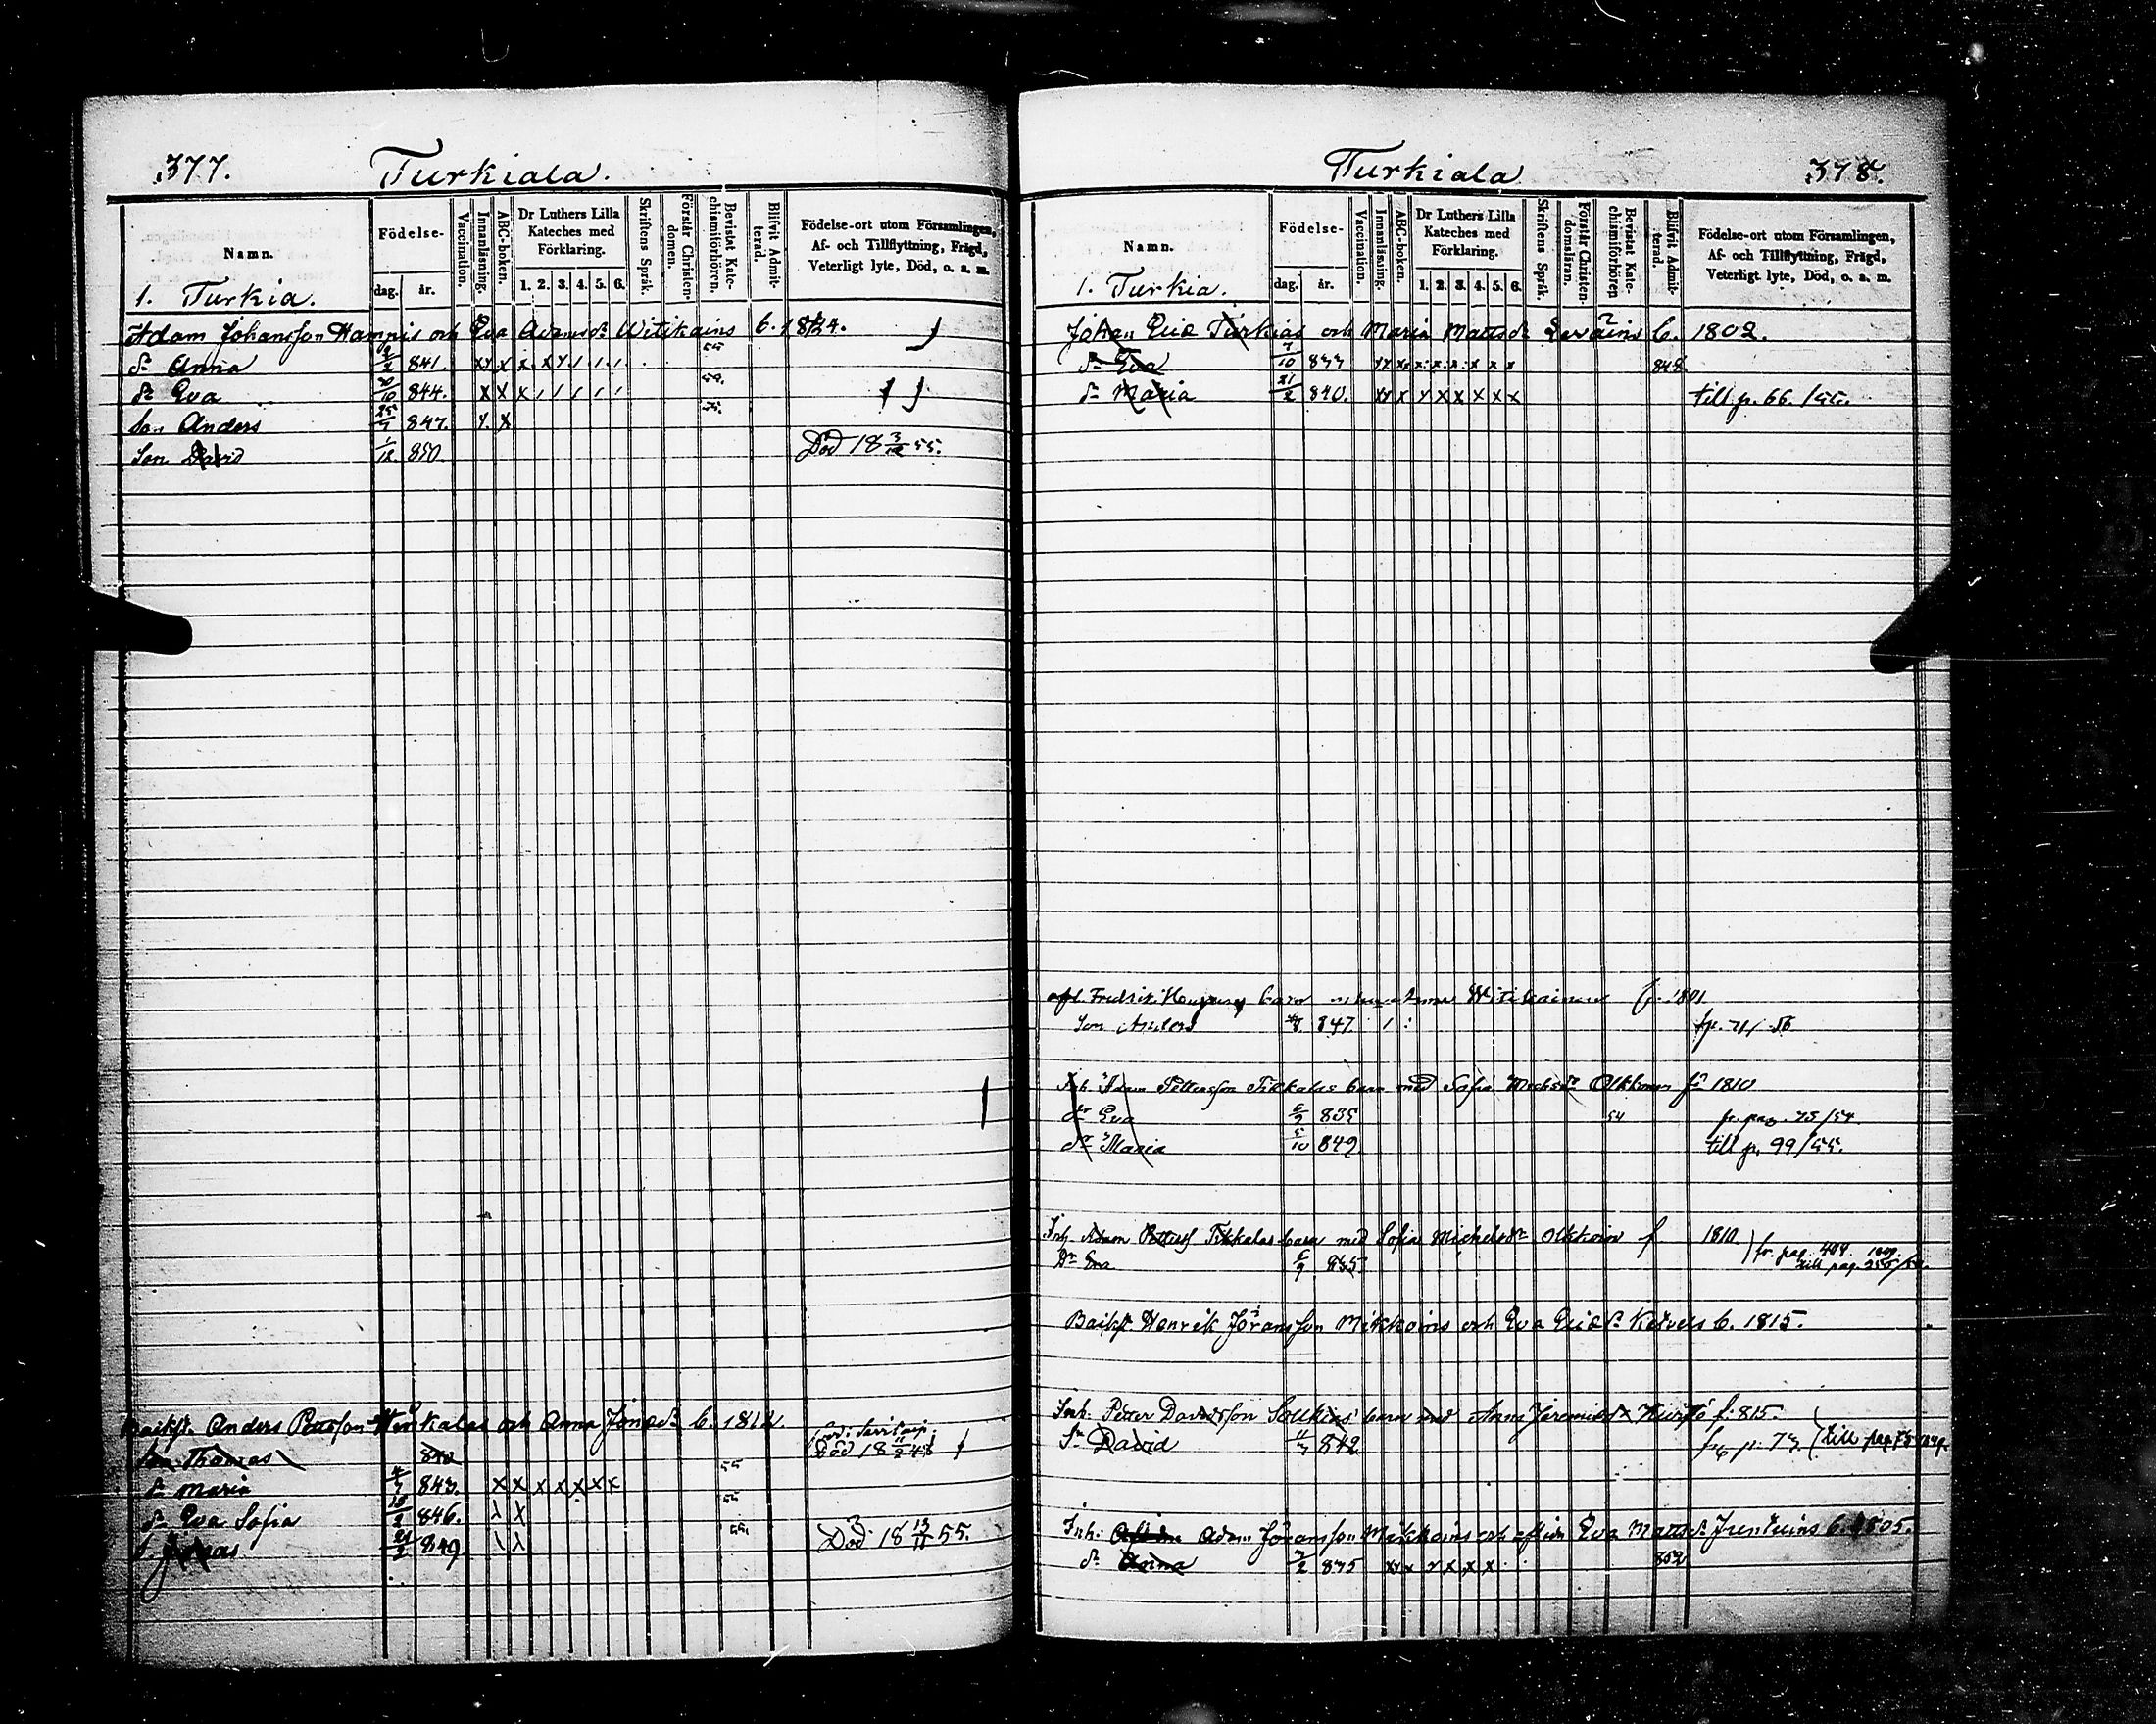 377. Turkiala.
Namn. Födelse- dag. år. Vaccination. Innanläsning. ABC-boken. Dr Luthers Lilla Kateches med Förklaring. 1. 2. 3. 4. 5. 6. Skriftens Språk. Förstår Christendomen. Bevistat Katechismiförhören. Blifvit Admitterad. Födelse-ort utom Församlingen, Af- och Tillflyttning, Frägd, Veterligt lyte, Död, o. a. m.
1. Turkia.
Adam Johansson Hampis och Eva Adamsdr Witikains b. 1824.
dr Anna 2 841. x x x x x 1 1 1 1 55
dr Eva 20/10 844. x x x 1 1 1 1 1
Son Anders 25 847. x x 55.
Son David 1/12 850 Död 18 3/12 55.
Baikst. Anders Pettersson och Anna Jönsdr b. 1812.
Son Thomas 842 Död 18 11/2 48
dr Maria 843. x x x x x x x 55
dr Eva Sofia 846. x x 55
Jonas 849 Död 18 13/11 55.
Turkiala 378.
Namn. Födelse- dag. år. Vaccination. Innanläsning. ABC-boken. Dr Luthers Lilla Kateches med Förklaring. 1. 2. 3. 4. 5. 6. Skriftens Språk. Förstår Christendomsläran. Bevistat Katechismiförhören Blifvit Admitterad. Födelse-ort utom Församlingen, Af- och Tillflyttning, Frägd, Veterligt lyte, Död, o. a. m.
1. Turkia.
Johan Turkias och Maria Mattsdr b. 1802.
dr Eva 7/10 833 x x x x x x x x x 848
dr Maria 21/2 840. x x x x x x x x x till p. 66. /55.
Fredrik barn Anna Witikainen f. 1801
Son Anders 8 847 1 fr. 71/56
Inh. Adam Pettersson Tikkalas barn med Sofia Michsdr Olkkonen f. 1810
dr Eva 6/9 835 54 fr. pag. 75/54.
dr Maria 5/10 842 till p. 99/55.
Inh. Adam Petterss Tikkalas barn med Sofia Michelsdr Olkkoin f 1810
Dr Eva 6/9 835 fr. pag. 404. till pag. 250/
Baikst. Henrik Göransson Mikkoins och Eva Ericsdr b. 1815.
Inh. Petter Davidsson barn med Anna Jeremiasd f. 815.
Sn David 11 842 p. 73. till pag
Inh. Adam Göransson Mikkoins och Eva Mattsdr b. 1805.
dr Anna 7/2 835 x x x x x x x 852